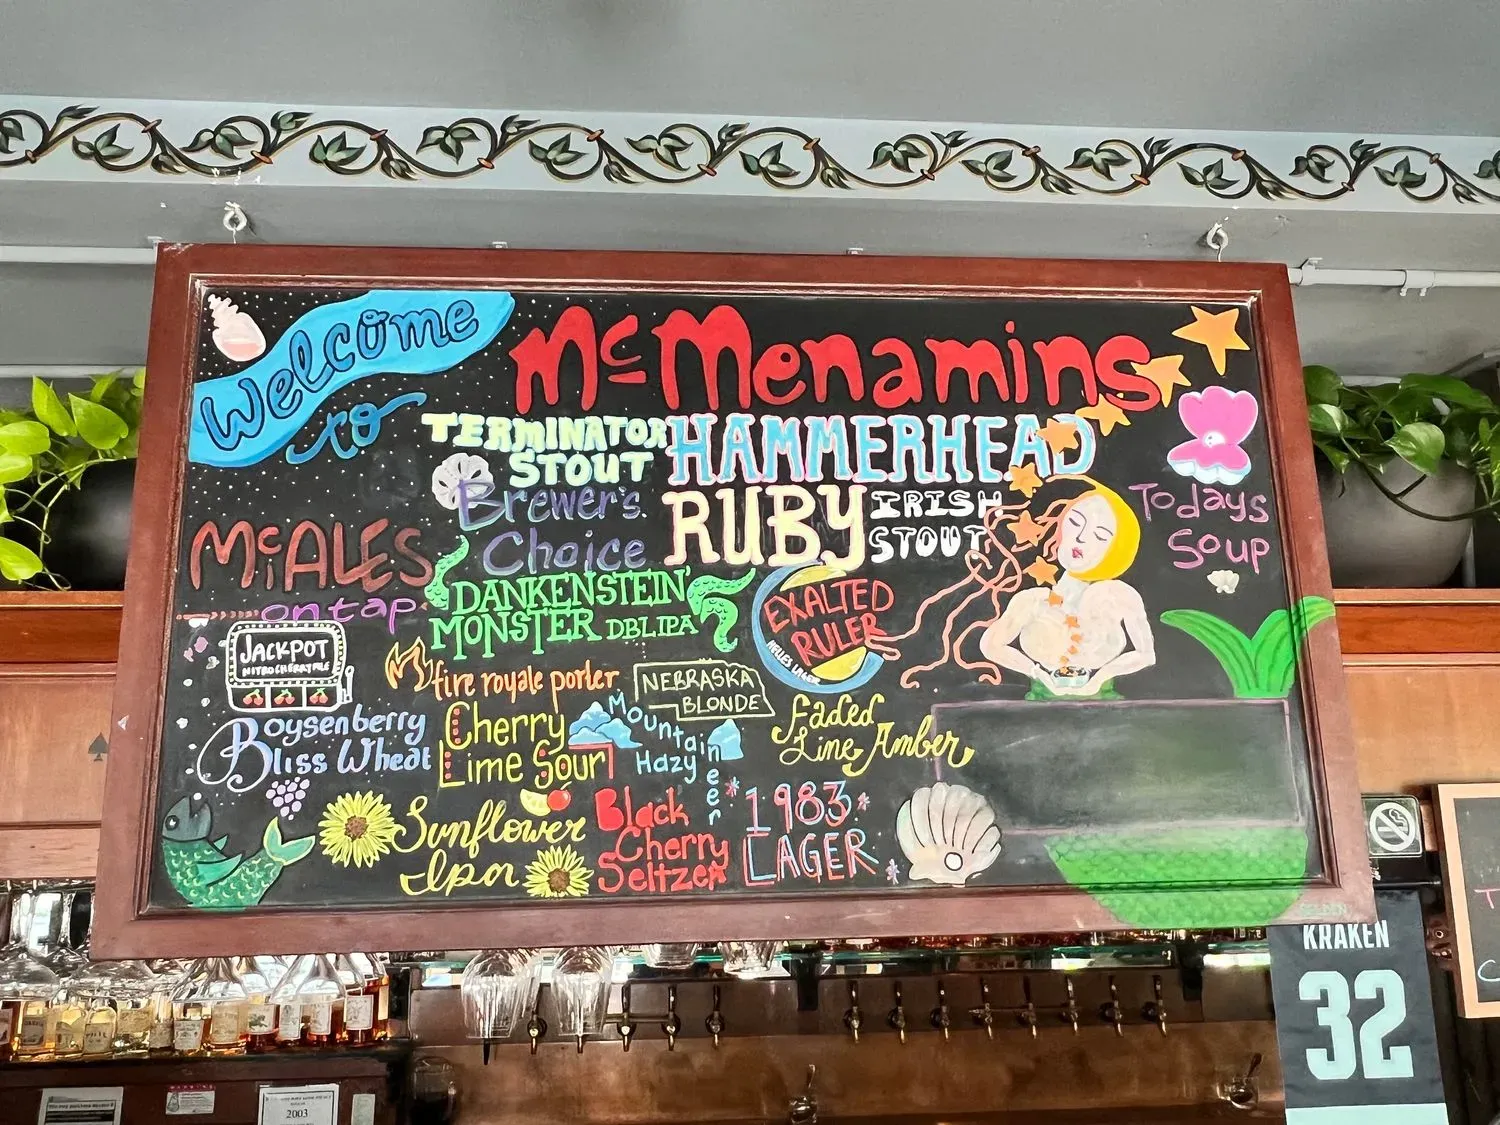 Welcome
to
McMenamins
TERMINATOR
STOUT
HAMMERHEAD
Brewer's
Choice
RUBY
IRISH
STOUT
Todays
Soup
McALES
on tap
DANKENSTEIN'
MONSTER DBL IPA
EXALTED
RULER
HELLES LAGER
JACKPOT
NITRO CHERRY ALE
fire royale porter
NEBRASKA
BLONDE
Boysenberry
Bliss Wheat
Cherry
Lime Sour
Mountaineer
Hazy
Faded
Line Amber
Sunflower
Ipa
Black
Cherry
Seltzer
1983
LAGER
KRAKEN
32
2003